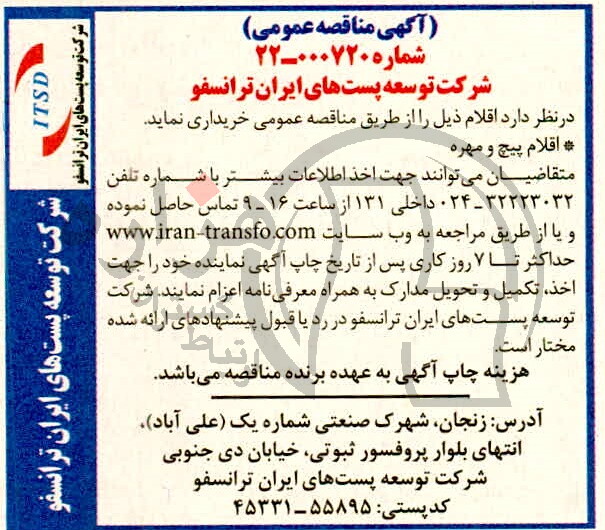 (آگهی مناقصه عمومی)
شماره ۰۰۰۷۲۰-۲۲
شرکت توسعه پست‌های ایران ترانسفو
درنظر دارد اقلام ذیل را از طریق مناقصه عمومی خریداری نماید.
* اقلام پیچ و مهره
متقاضیان می‌توانند جهت اخذ اطلاعات بیشتر با شماره تلفن
۳۲۲۲۳۰۳۲-۰۲۴ داخلی ۱۳۱ از ساعت ۱۶-۹ تماس حاصل نموده
و یا از طریق مراجعه به وب سایت www.iran-transfo.com
حداکثر تا ۷ روز کاری پس از تاریخ چاپ آگهی نماینده خود را جهت
اخذ، تکمیل و تحویل مدارک به همراه معرفی‌نامه اعزام نمایند. شرکت
توسعه پست‌های ایران ترانسفو در رد یا قبول پیشنهادهای ارائه شده
مختار است.
هزینه چاپ آگهی به عهده برنده مناقصه می‌باشد.
آدرس: زنجان، شهرک صنعتی شماره یک (علی آباد)،
انتهای بلوار پروفسور ثبوتی، خیابان دی جنوبی
شرکت توسعه پست‌های ایران ترانسفو
کدپستی: ۵۵۸۹۵-۴۵۳۳۱
ITSD
شرکت توسعه پست‌های ایران ترانسفو
شرکت توسعه پست‌های ایران ترانسفو